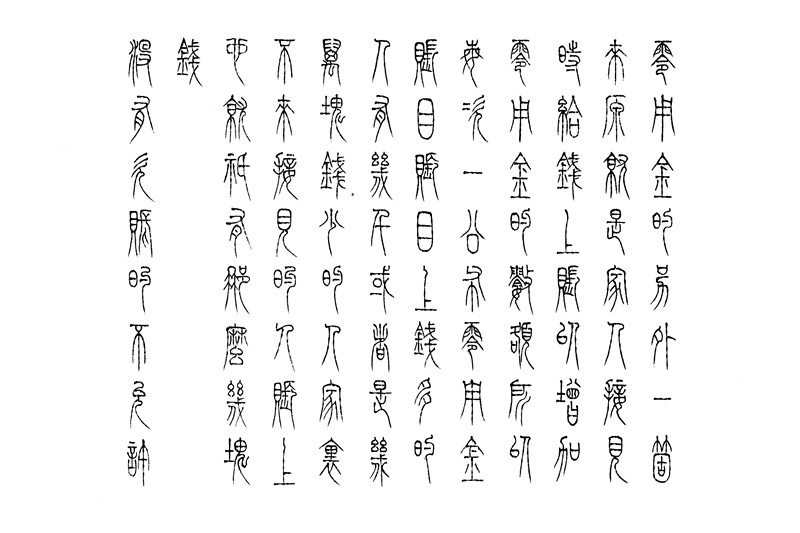 零用金的另外一箇
來原就是家人接見
時給錢上賬以增加
零用金的數額所以
每次一公布零用金
賬目賬目上錢多的
人有幾千或者是幾
萬塊錢少的人家裏
不來接見的人賬上
也就祇有那麼幾塊
錢
沒有欠賬的不允許